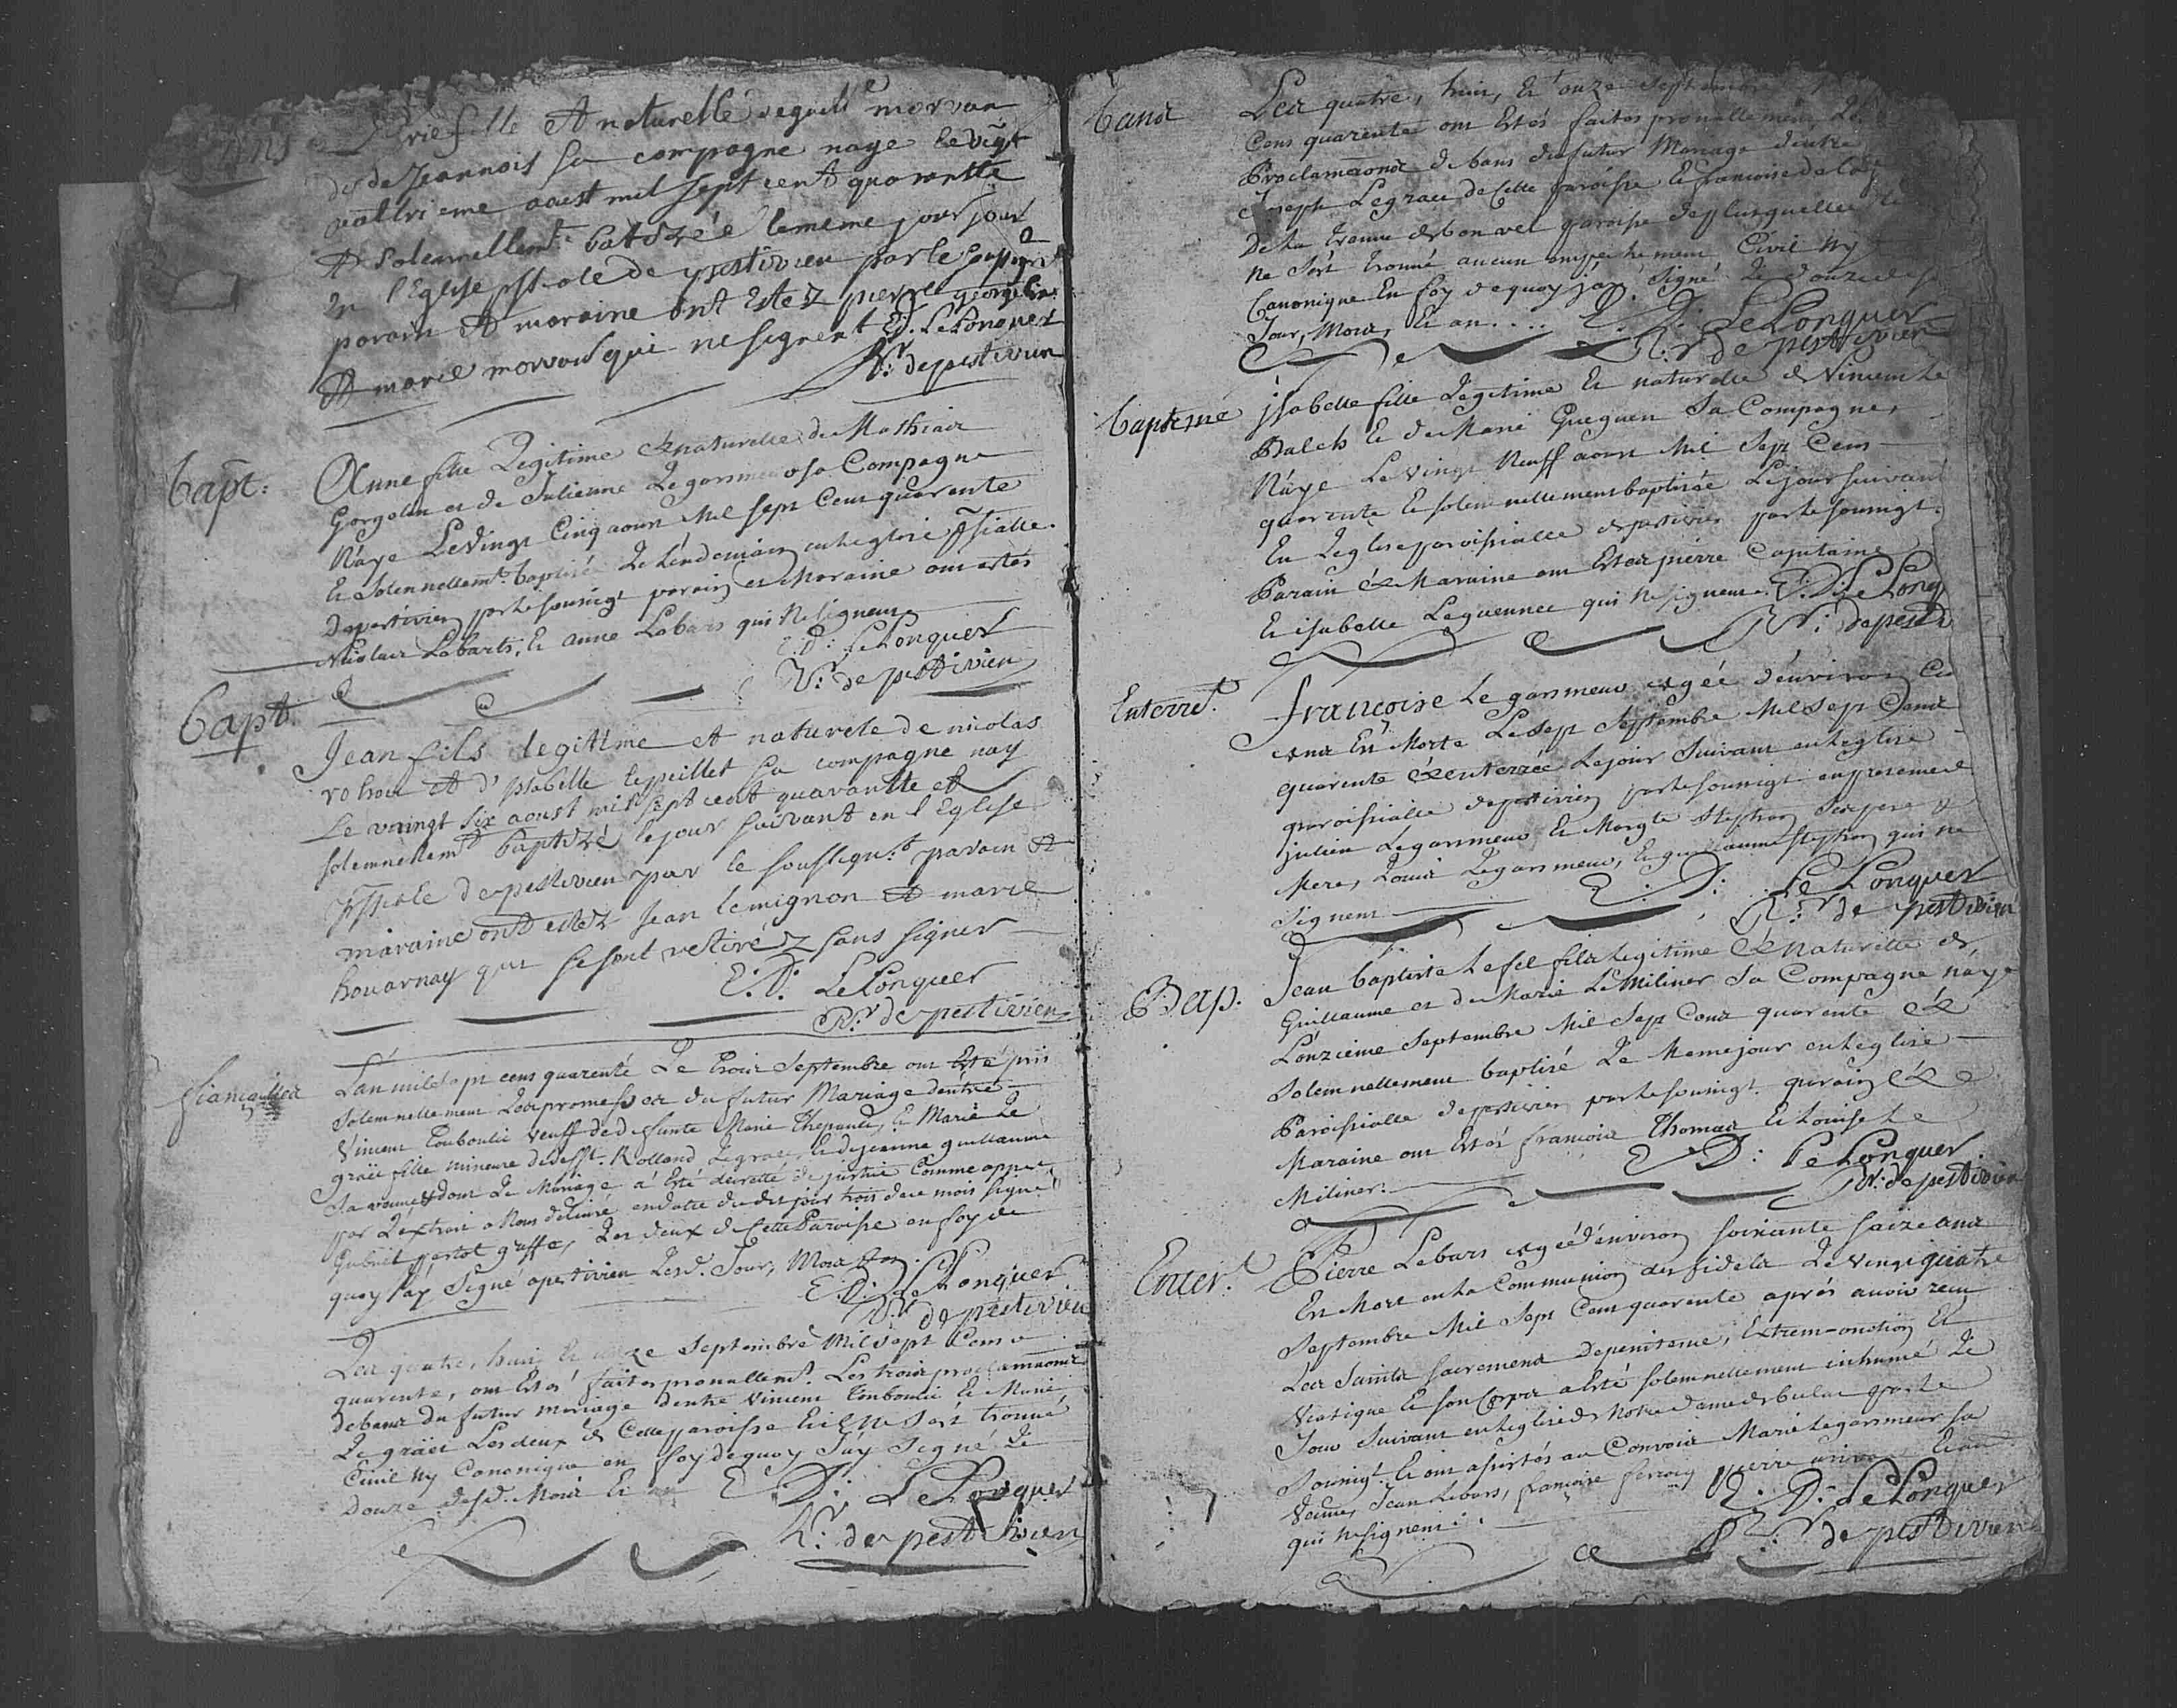 rie fille et naturelle morvan
de Jeannois sa compagne naye le vigt
quattrieme aoust mil sept cent quarantte
et solemnellemt. batizéé lememe jour
en l'Eglise de pestivien par le
parain et maraine ont Estez pierre georgelin
et marie morvan qui ne signent E. D. LeLonquer
Rr. de pestivien
Bapt:
Anne fille Legitime & naturelle de Mathiae
Gorgelin et de Julienne Legarsmeur sa Compagne
Naye Le Vingt Cinq aoust Mil sept Cens quarente
Et Solennellemt. baptisé Le Lendemain en Leglise
De pestivien par le sousigt parain et Maraine ont estés
Nicolas Lebarts, Et anne Lebars qui Ne signent
E. D: LeLonquer
Rr. de pestivien
Bapt
Jean fils legitime et naturele de nicolas
et d'ysabelle lepeillet sa compagne nay
Le vaingt six aoust mil sept cent quarantte et
solemnellemt baptizé lejour suivant en l'Eglise
de pestivien par le soussignt. parain et
maraine ont estez Jean lemignon et marie
houarnay qui se sont retiréz sans signer
E. D: LeLonquer
Rr. de pestivien
fiancailles
L'an mil sept cens quarente Le trois Septembre ont Esté pris
Solemnellement Les promesses du futur Mariage dentre
Vincent Touboulic veuff de defunte Marie Thepault, Et Marie Le
graët fille mineure de defft. Rolland Legraet, Et de jeanne guillaume
Sa veuve dont Le Mariage a Esté decretté de justice Comme appert
par Lextrait a Nous delivré endatte du dit jour trois de ce mois signé
greffe, Les deux de Cette Paroisse en foy de
quoy jay Signé a pestivien Lesd. Jour, Mois
E. D: LeLonquer
Rr. de pestivien
Les quatre, huit Et onze Septembre Mil sept Cens
quarente, ont Estés faites pronallemt. Les trois proclamaons
de bans du futur mariage dentre Vincent Touboulic Et Marie
Le gräet Les deux de Cette paroisse Et il Ne sest trouvé
Civil Ny Canonique en foy de quoy Jäy Signé Le
Douze desd. Mois Et an E D: LeLonquer
Rr. de pestivien
bans
Les quatre, huit, Et onze Septembre
Cens quarente ont Estés faites pronallement Les
Proclamaons de bans du futur Mariage dentre
Joseph Legraet de Cette paroisse Et francoise
De La treuve de bonvel paroisse
Ne sest trouvé aucun empechement Civil Ny
Canonique En foy de quoy jay Signé Le douze
Jour, Mois, Et an.... E. D. LeLonquer
Rr de pestivien
baptesme
jsabelle fille Legitime Et naturelle de Vincent Le
Balch Et de Marie Gueguen Sa Compagne,
Näye Le Vingt Neuff aoust Mil Sept Cens
quarente Et solemnellement baptisée Le jour suivant
En Leglise paroissialle de pestivien par le sousigt.
Parain & Maraine ont Estés pierre Capitaine
Et isabelle Leguennec qui Ne signent. E. D. LeLonq
Rr. de pesti
Enterremt.
francoise Legarsmeur agée denviron
ans Est Morte Le sept Septembre Mil Sept Cens
quarente & enterrée Le jour Suivant en Leglise
paroissialle de pestivien par le sousigt en presence de
julien Legarsmeur Et Margte Stephan Ses pere &
Mere, Louis Legarsmeur, Et guillaume Stephan qui ne
Signent E. D: LeLonquer
Rr. de pestivien
Bap.
Jean baptiste Lefel fils Legitime & Naturelle de
Guillaume et de Marie LeMiliner Sa Compagne näye
Lonzieme Septembre Mil Sept Cens quarente &
Solemnellement baptisé Le Meme jour en Leglise
Paroissialle de pestivien par le sousigt. parain &
Maraine ont Estés francois Thomas Et Louise Le
Miliner. E D: LeLonquer
Rr. de pestivien
Enter.t
Pierre Lebars agé denviron soixante saize ans
Est Mort en la Communion des fideles Le Vingt quatre
Septembre Mil Sept Cens quarente aprés avoir recu
Les Saints sacremens De penitence, Extrem-onction Et
Viatique Et son Corps a Esté solemnellement inhumé Le
Jour suivant en Leglise de Notre dame de bulat par le
sousigt. Et ont assistés au Convoie Marie Legarsmeur sa
Veuve, Jean Lebars, francoise
qui Ne signent. E. D: LeLonquer
Rr. de pestivien